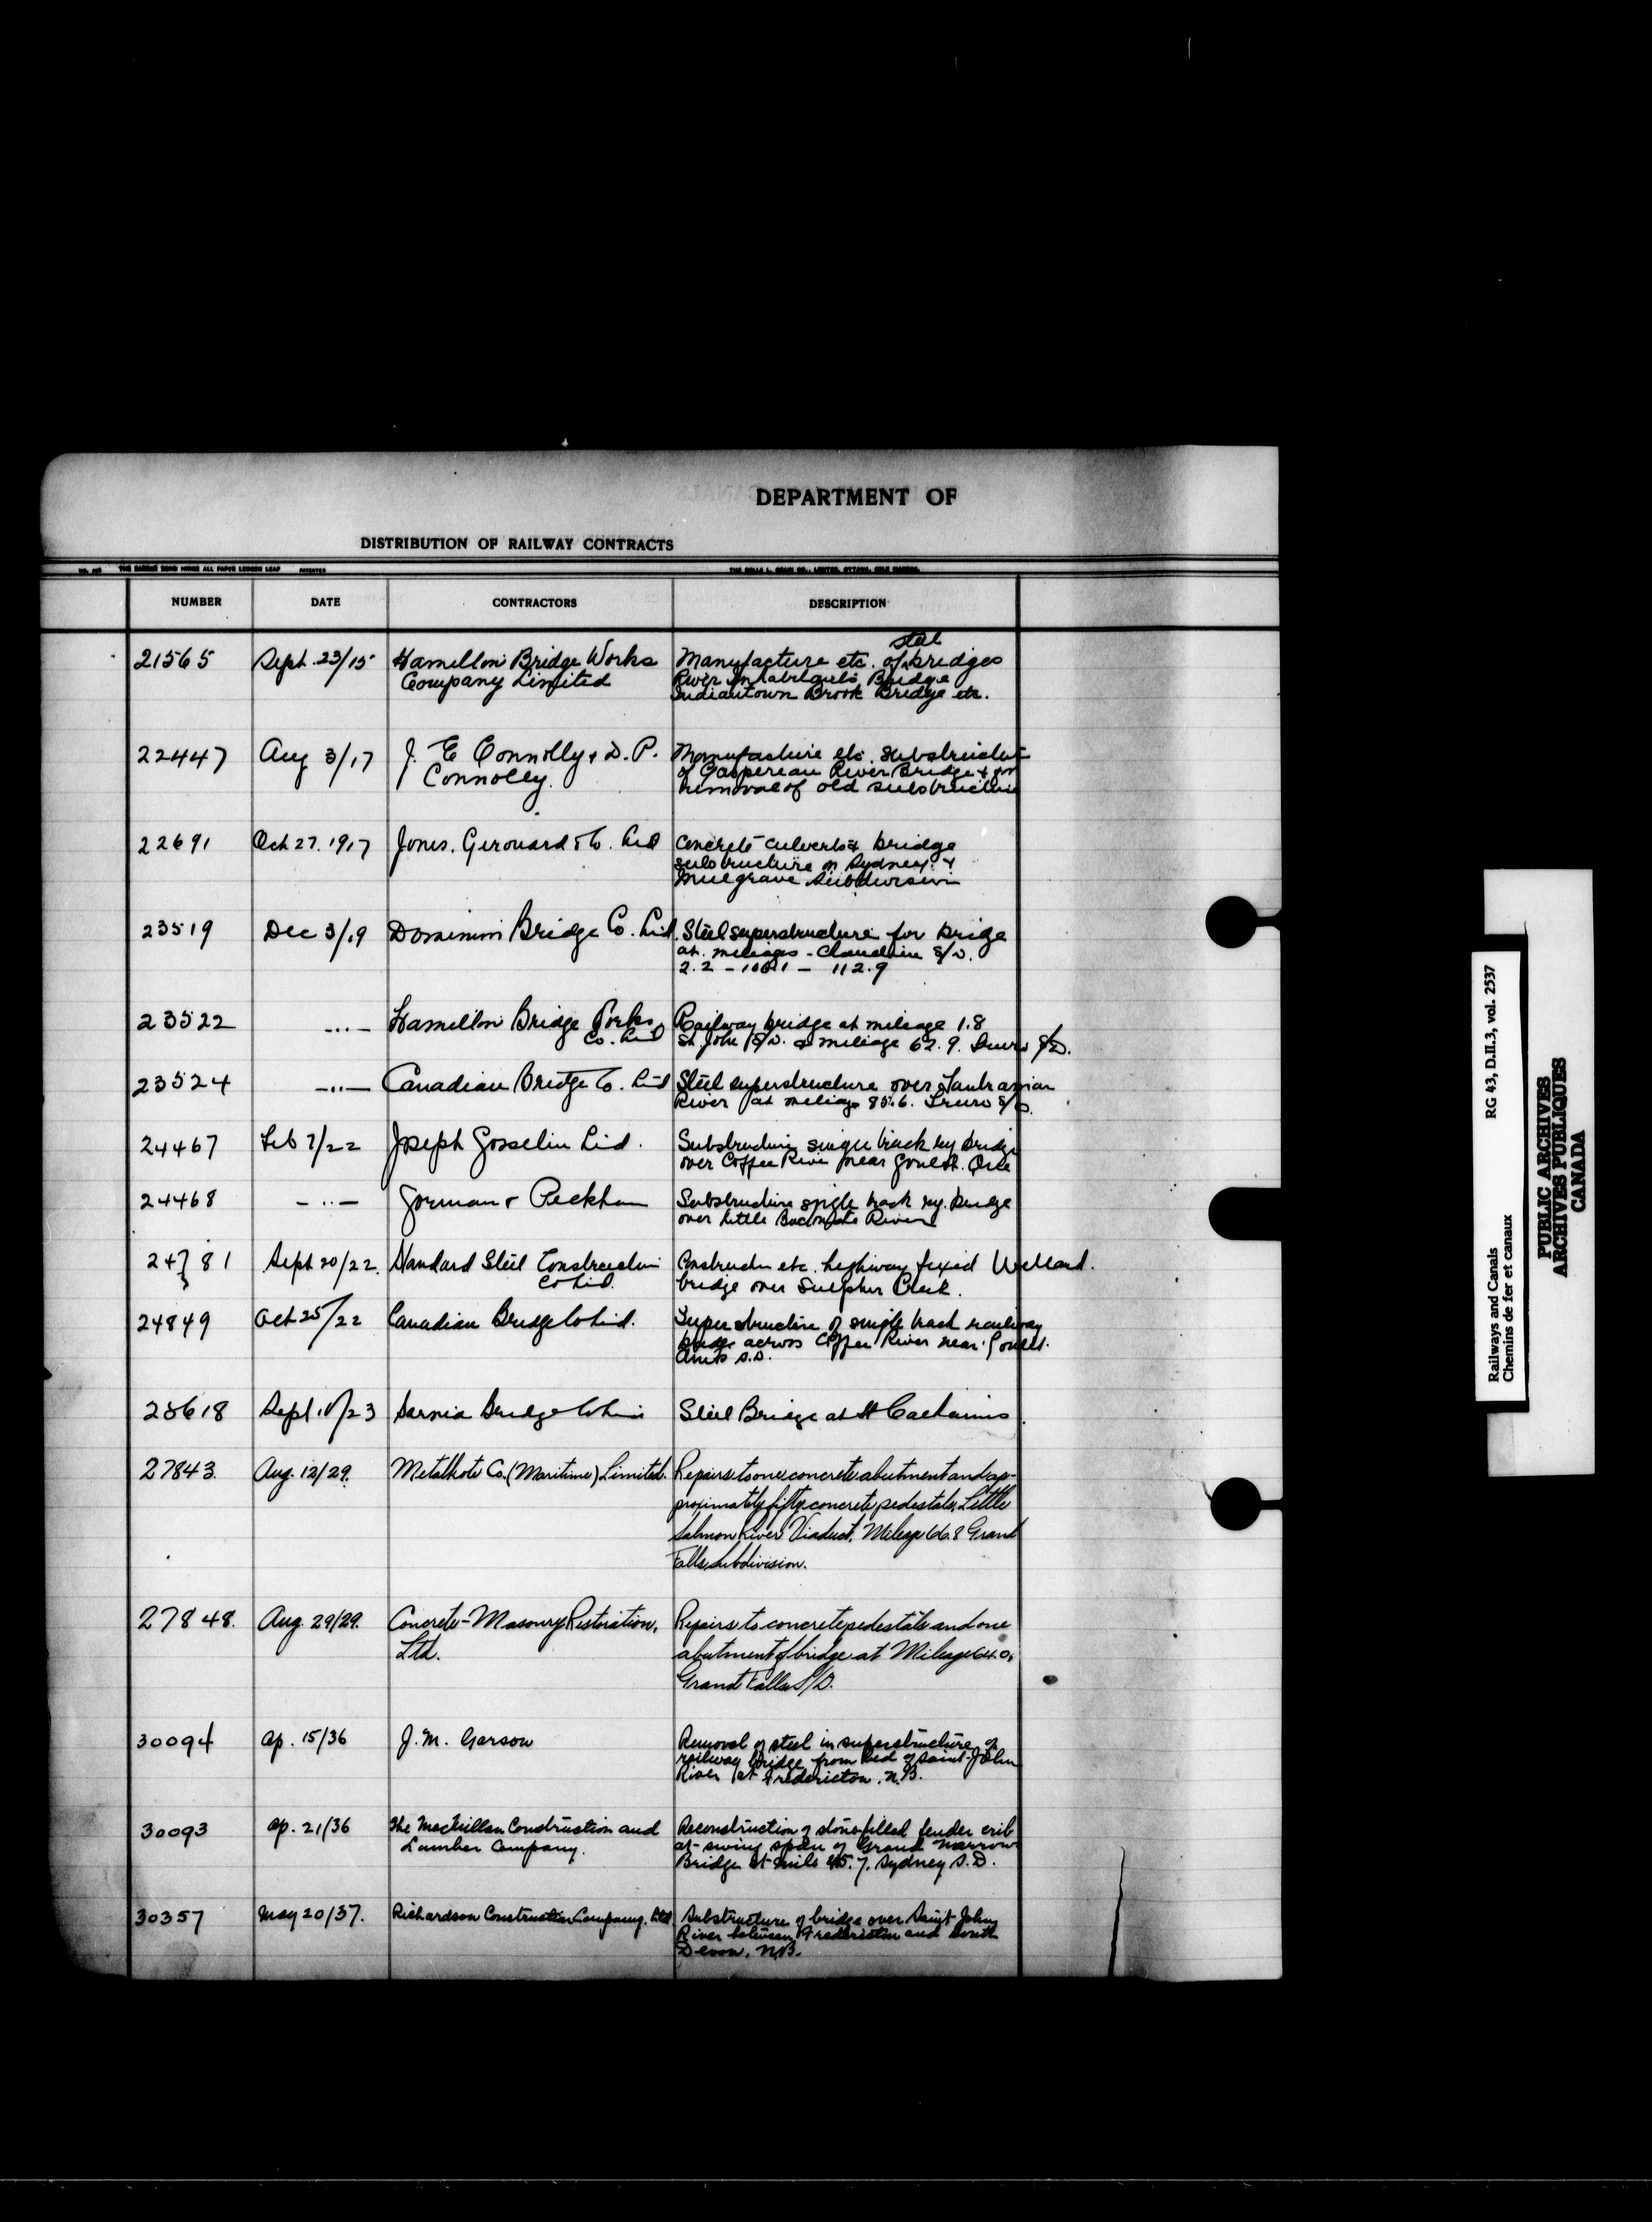 DEPARTMENT OF
DISTRIBUTION OF RAILWAY CONTRACTS
NUMBER DATE CONTRACTORS DESCRIPTION
21565 Sept. 23/15 Hamilton Bridge Works Manufacture etc. of steel bridges
Company Limited River Inhabitants Bridge
Indiantown Brook Bridge etc.
22447 Aug 3/17 J. E Connolly & D. P. Manufacture etc. substructure
Connolly. of Gaspereau River Bridge & for
removal of old substructure
22691 Oct 27. 1917 Jones, Girouard & Co. Ltd Concrete culverts & bridge
substructure on Sydney &
Mulgrave Subdivision
23519 Dec 3/19 Dominion Bridge Co. Ltd. Steel superstructure for bridge
at. mileages - Chaudiere S/D.
2.2 - 112.9
23522 -"- Hamilton Bridge Works Railway bridge at mileage 1.8
Co. Ltd St. John S/D. & mileage 62.9. Truro S/D.
23524 -"- Canadian Bridge Co. Ltd Steel superstructure over
River at mileage 85.6. Truro S/D.
24467 Feb 7/22 Joseph Gosselin Ltd. Substructure single track ry bridge
over Coffee River near Que
24468 -"- Gorman & Peckham Substructure single track ry. bridge
over Little River
24781 Sept 20/22. Standard Steel Construction Construction etc. highway fixed Welland.
Co Ltd. bridge over Sulphur Creek.
24849 Oct 25/22 Canadian Bridge Co Ltd. Superstructure of single track railway
bridge across Coffee River near
S.D.
25618 Sept 11/23 Sarnia Bridge Co Lim Steel Bridge at St Catharines.
27843. Aug. 12/29. Metalkote Co. (Maritime) Limited. Repairs to one concrete abutment and ap-
proximately fifty concrete pedestals, Little
Salmon River Viaduct, Mileage 66.8 Grand
Falls Subdivision.
27848. Aug. 29/29. Concrete-Masonry Restoration, Repairs to concrete pedestals and one
Ltd. abutment of bridge at Mileage 64.0,
Grand Falls S/D.
30094 Ap. 15/36 J. M. Garson Removal of steel in superstructure of
railway bridge from bed of Saint-John
River at Fredericton, N.B.
30093 Ap. 21/36 The MacMillan Construction and Reconstruction of stone filled fender crib
Lumber Company. at swing span of Grand Narrows
Bridge at mile 45.7, Sydney S.D.
30357 May 20/37. Richardson Construction Company, Ltd. Substructure of bridge over Saint John
River between Fredericton and South
Devon, N.B.
Railways and Canals RG 43, D.II.3, vol. 2537
Chemins de fer et canaux
PUBLIC ARCHIVES
ARCHIVES PUBLIQUES
CANADA